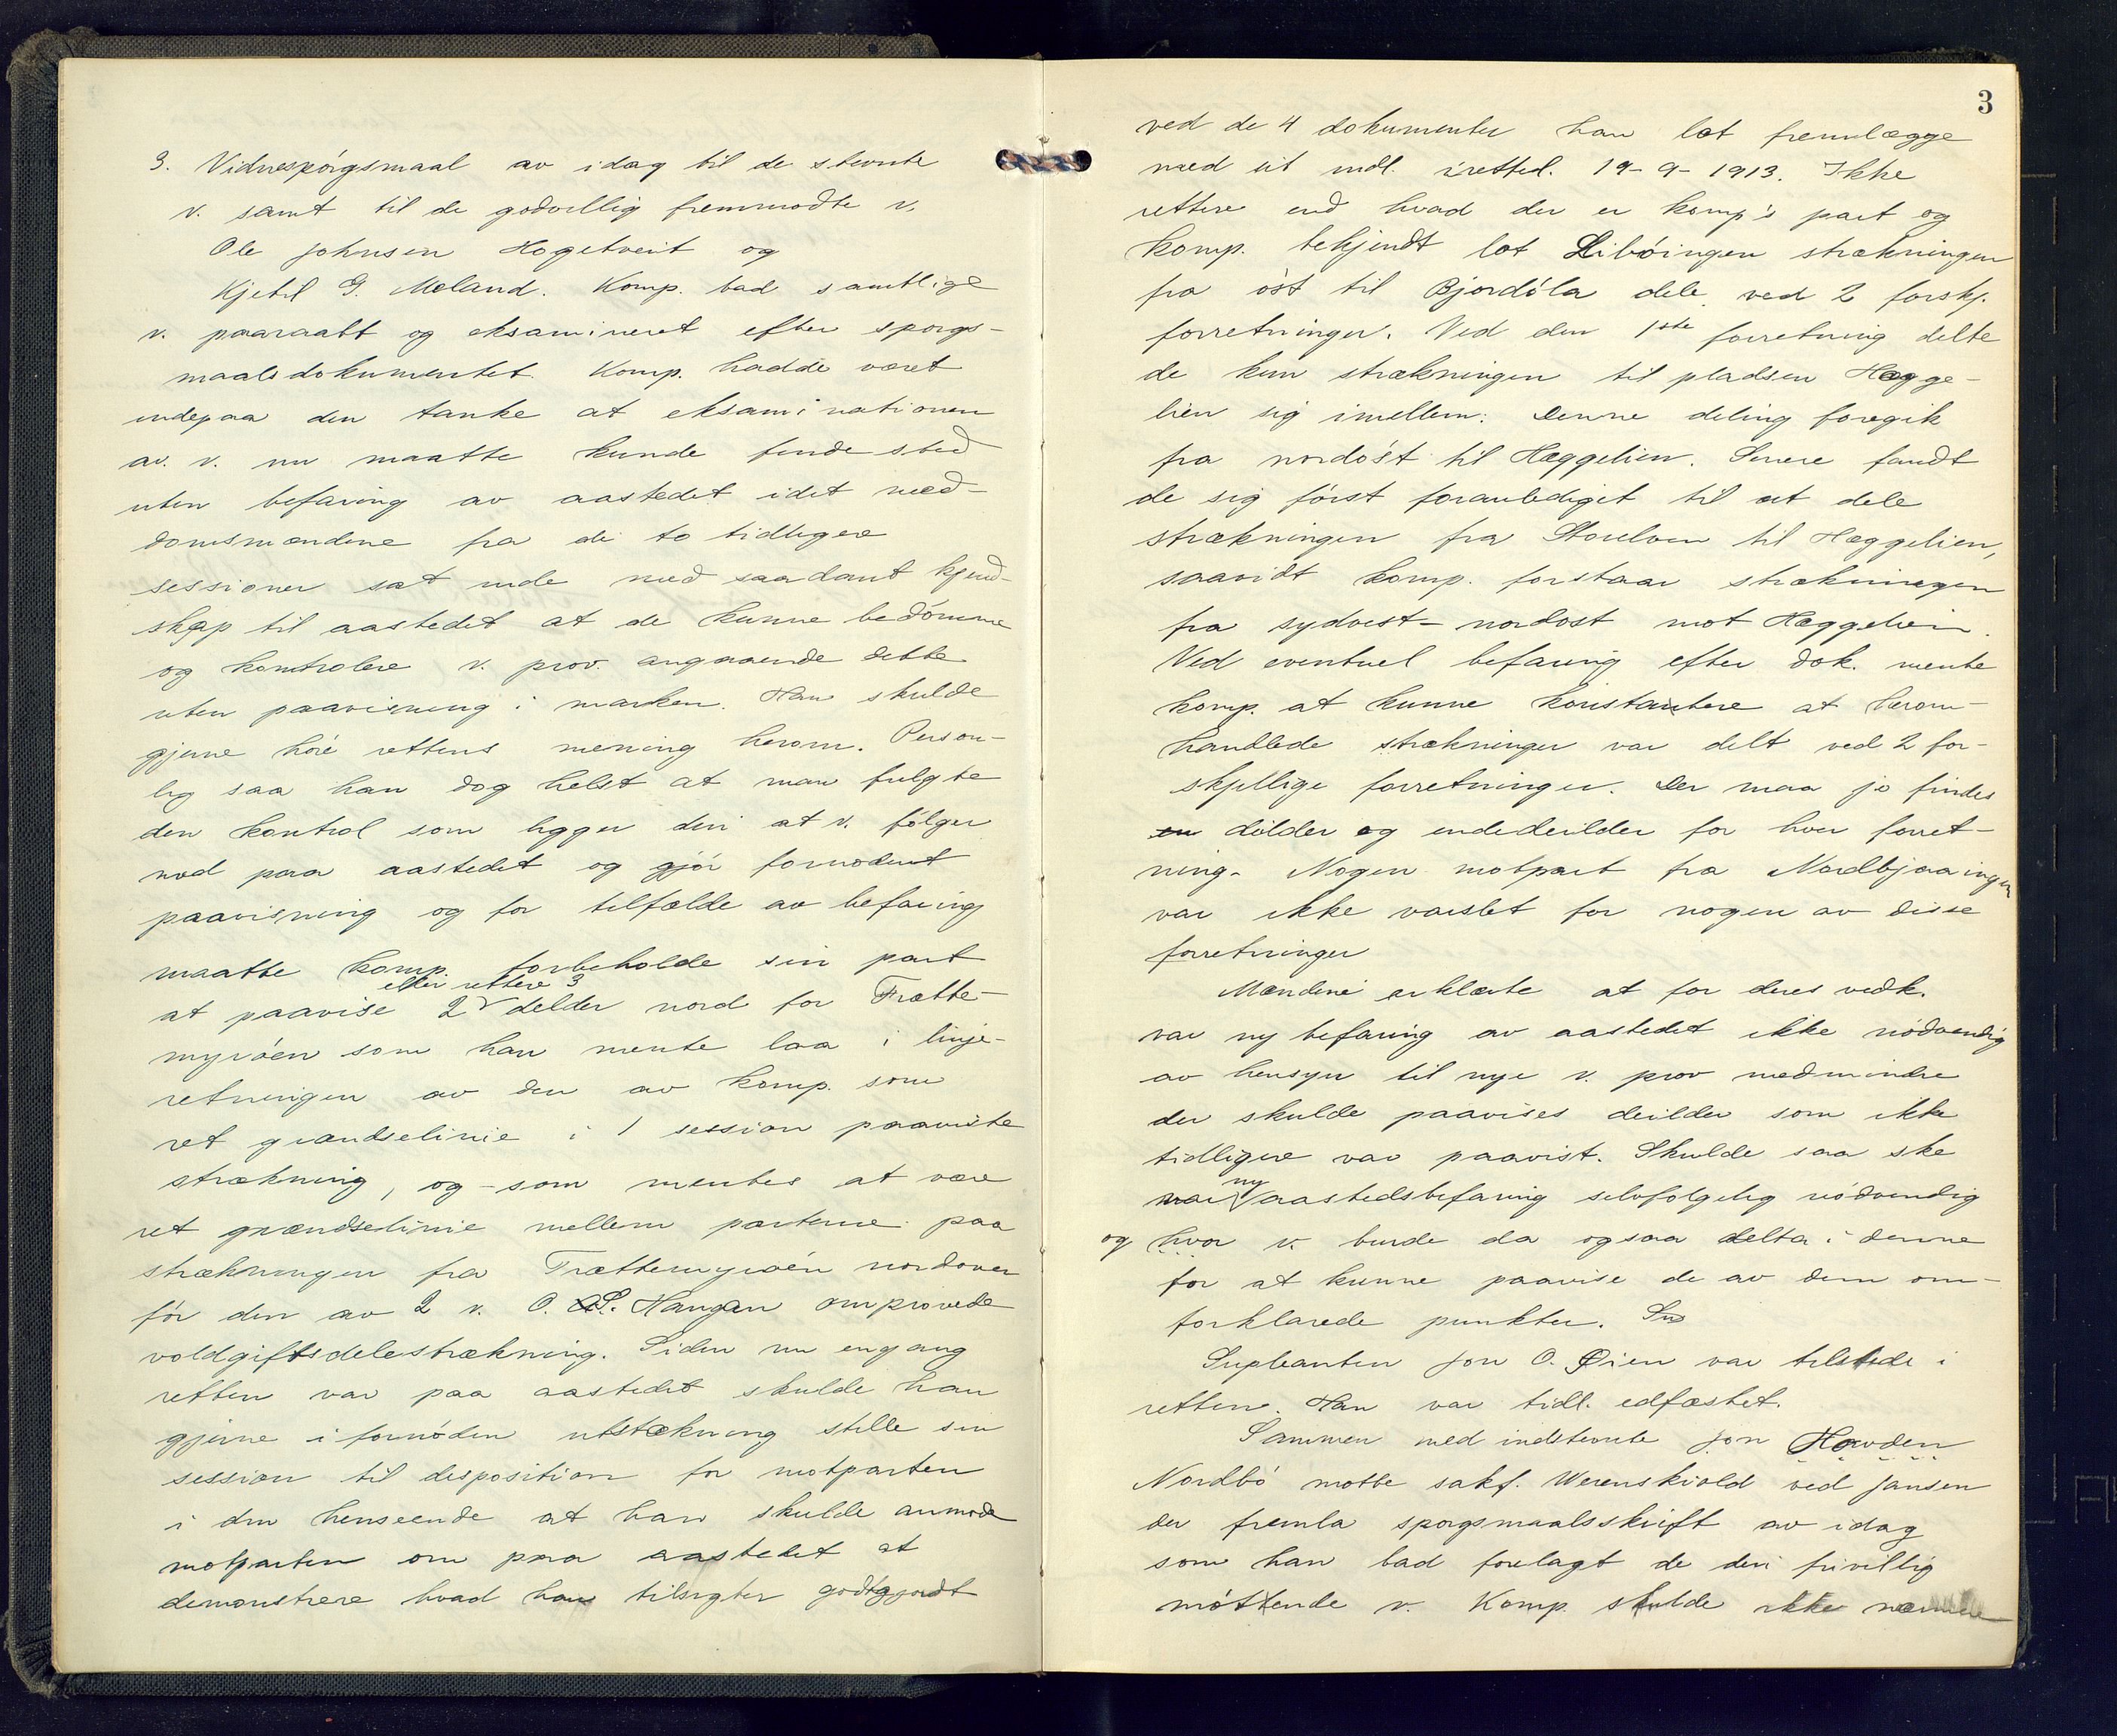 3. Vidnespórgsmaal av idag til de stevnte
v. samt til de godvillig fremmødte v.
Ole Johnsen Hogetveit og
Kjetil G. Moland. Komp. bad samtlige
v. paaraabt og eksamineret efter sporgs-
maalsdokumentet. Komp. hadde været
indepaa den tanke at eksaminationen
av. v. nu maatte kunde finde sted
uten befaring av aastedet idet med-
domsmændene fra de to tidligere
sessioner sat inde med saadant kjend-
skap til aastedet at de kunne bedómme
og kontrolere v. prov. angaaende dette
uten paavisning i marken. Han skulde
gjerne hóre rettens mening herom. Person-
lig saa han dog helst at man fulgte
den kontrol som ligger deri at v. fólger
med paa aastedet og gjór fornødent
paavisning og for tilfælde av befaring
maatte komp. forbeholde sin part
eller rettere 3
at paavise 2 delder nord for Trætte-
myróen som han mente laa i linje-
retningen av den av komp. som
ret grændselinie i 1 session paaviste
strækning, og - som mentes at være
ret grændselinie mellem parterne paa
strækningen fra Trættemyróen nordover
fór den av 2 v. O. S. Haugen omprovede
voldgiftsdelestrækning. Siden nu engang
retten var paa aastedet skulde han
gjerne i fornóden utstrækning stille sin
session til disposition for motparten
i den henseende at han skulde anmode
motparten om paa aastedet at
demonstrere hvad han tilsigter godtgjordt
3
ved de 4 dokumenter han lot fremlægge
med sit indl. irettel. 19-9-1913. Ikke
rettere end hvad der er komp's part og
komp. bekjendt lot Libóingen strækningen
fra óst til Bjordóla dele ved 2 forskj.
forretninger. Ved den 1ste forretning delte
de kun strækningen til pladsen Hægge-
lien sig imellem: Denne deling foregik
fra nordóst til Hæggelien. Senere fandt
de sig fórst foranlediget til at dele
strækningen fra Storelven til Hæggelien,
saavidt komp. forstaar strækningen
fra sydvest - nordost mot Hæggelien.
Ved eventuel befaring efter dok. mente
komp. at kunne konstantere at herom-
handlede strækninger var delt ved 2 for-
skjellige forretninger. Der maa jo findes
en dilder og endedeilder for hver forret-
ning. Nogen motpart fra Nordbjaaingen
var ikke varslet for nogen av disse
forretninger
Mændene erklærte at for deres vedk.
var ny befaring av aastedet ikke nódvendig
av hensyn til nye v. prov medmindre
der skulde paavises deilder som ikke
tidligere var paavist. Skulde saa ske
ny
var aastedsbefaring selvfolgelig nódvendig
og hvor v. burde da ogsaa delta i denne
for at kunne paavise de av dem om-
forklarede punkter. Su
Supleanten Jon O. Øien var tilstede i
retten. Han var tidl. edfæstet.
Sammen med indstevnte Jon Howden
Nordbó møtte sakf. Werenskiold ved Jansen
der fremla sporgsmaalsskrift av idag
som han bad forelagt de deri frivillig
móttende v. Komp. skulde ikke nævne